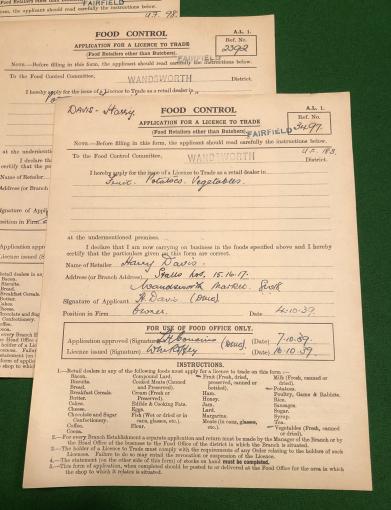 FAIRFIELD
U.F. 98.
FOOD CONTROL
APPLICATION FOR A LICENCE TO TRADE
(Food Retailers other than Butchers)
A.L. 1.
Ref. No.
2392
FAIRFIELD
NOTE.—Before filling in this form, the applicant should read carefully the instructions below.
To the Food Control Committee,
WANDSWORTH
District.
I hereby apply for the issue of a Licence to Trade as a retail dealer in
DAVIS - Harry.
FOOD CONTROL
APPLICATION FOR A LICENCE TO TRADE
(Food Retailers other than Butchers)
A.L. 1.
Ref. No.
3497.
FAIRFIELD
NOTE.—Before filling in this form, the applicant should read carefully the instructions below.
U.F. 183.
To the Food Control Committee,
WANDSWORTH
District.
I hereby apply for the issue of a Licence to Trade as a retail dealer in
Fruit. Potatoes. Vegetables.
at the undermentioned premises
I declare that I am now carrying on business in the foods specified above and I hereby
certify that the particulars given on this form are correct.
Name of Retailer Harry Davis.
Address (or Branch Address) Stalls Nos. 15.16.17.
Wandsworth Market.
Signature of Applicant H. Davis
Position in Firm Owner. Date 4.10.39.
FOR USE OF FOOD OFFICE ONLY.
Application approved (Signature) (Date) 7.10.39.
Licence issued (Signature) (Date) 10.10.39.
INSTRUCTIONS.
1.—Retail dealers in any of the following foods must apply for a licence to trade on this form :—
Bacon. Compound Lard. Fruit (Fresh, dried, Milk (Fresh, canned or
Biscuits. Cooked Meats (Canned preserved, canned or dried).
Bread. and Preserved). bottled). Potatoes.
Breakfast Cereals. Cream (Fresh or Ham. Poultry, Game & Rabbits.
Butter. Preserved). Honey. Rice.
Cakes. Edible & Cooking Fats. Jam. Sausages.
Cheese. Eggs. Lard. Sugar.
Chocolate and Sugar Fish (Wet or dried or in Margarine. Syrup.
Confectionery. cans, glasses, etc.). Meats (in cans, glasses, Tea.
Coffee. Flour. etc.). Vegetables (Fresh, dried,
Cocoa. canned or bottled).
2.—For every Branch Establishment a separate application and return must be made by the Manager of the Branch or by
the Head Office of the business to the Food Office of the district in which the Branch is situated.
3.—The holder of a Licence to Trade must comply with the requirements of any Order relating to the holders of such
Licences. Failure to do so may entail the revocation or suspension of the Licence.
4.—The statement (on the other side of this form) of stocks on hand must be completed.
5.—This form of application, when completed should be posted to or delivered at the Food Office for the area in which
the shop to which it relates is situated.